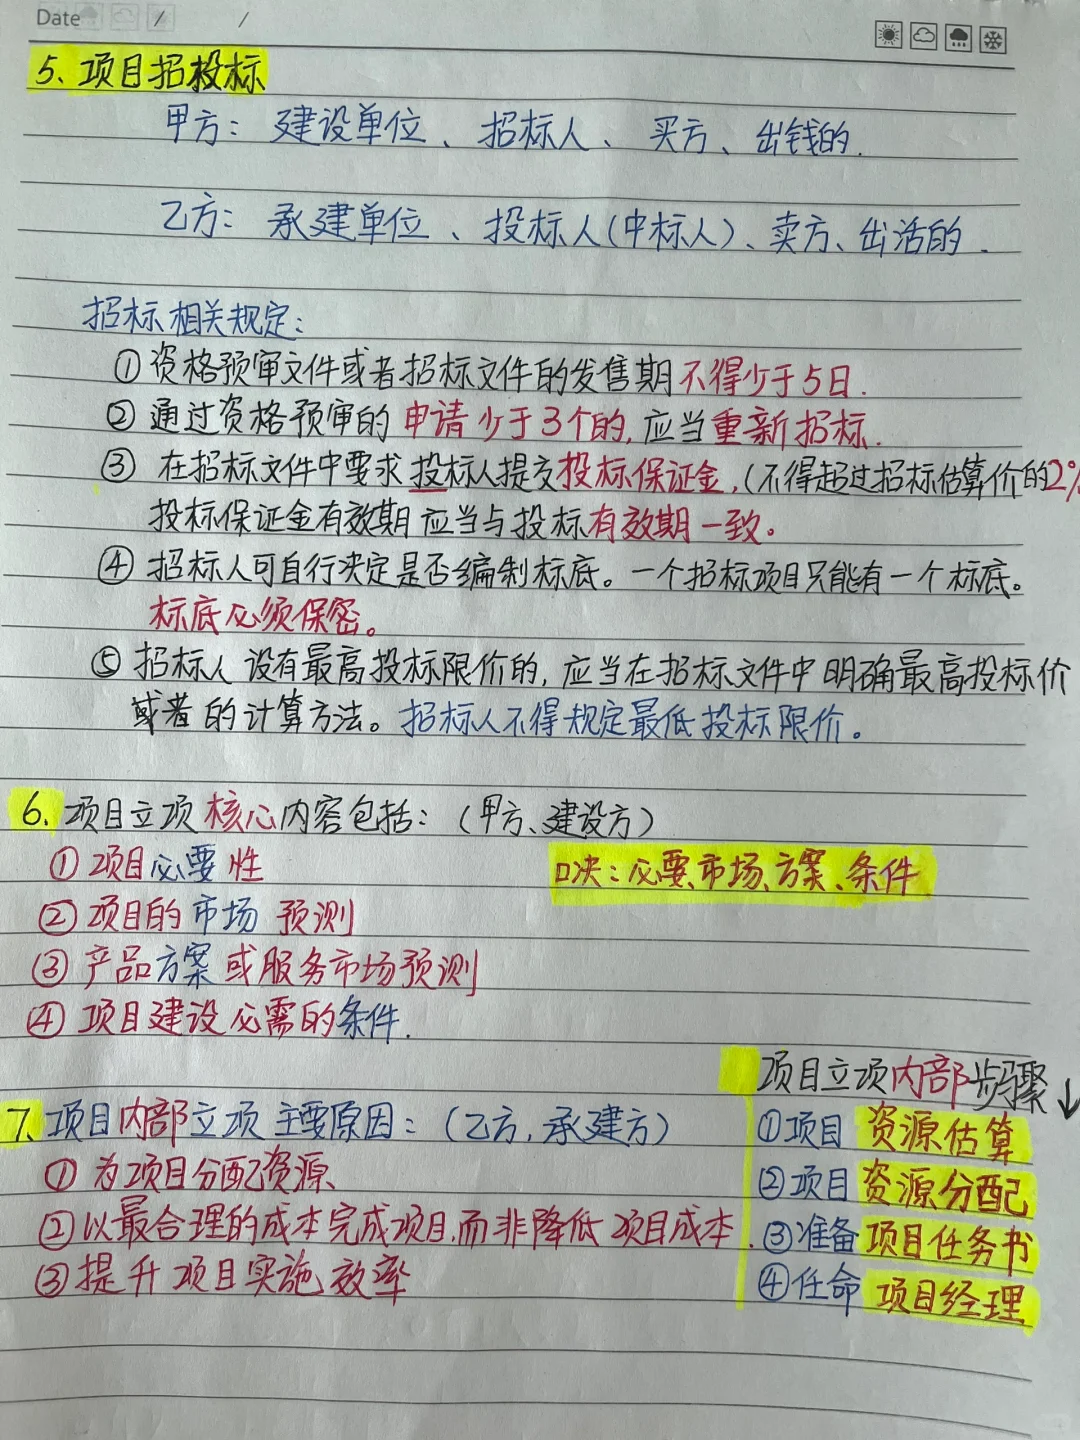 Date / /
5、项目招投标
甲方：建设单位、招标人、买方、出钱的.
乙方：承建单位、投标人(中标人)、卖方、出活的.
招标相关规定：
① 资格预审文件或者招标文件的发售期不得少于5日.
② 通过资格预审的申请少于3个的,应当重新招标.
③ 在招标文件中要求投标人提交投标保证金,(不得超过招标估算价的2%
投标保证金有效期应当与投标有效期一致。
④ 招标人可自行决定是否编制标底。一个招标项目只能有一个标底。
标底必须保密。
⑤ 招标人设有最高投标限价的,应当在招标文件中明确最高投标价
或者的计算方法。招标人不得规定最低投标限价。
6、项目立项核心内容包括：(甲方、建设方)
① 项目必要性
口决：必要、市场、方案、条件
② 项目的市场预测
③ 产品方案或服务市场预测
④ 项目建设必需的条件.
7、项目内部立项主要原因：(乙方,承建方)
① 为项目分配资源
② 以最合理的成本完成项目,而非降低项目成本.
③ 提升项目实施效率
项目立项内部步骤↓
① 项目资源估算
② 项目资源分配
③ 准备项目任务书
④ 任命项目经理